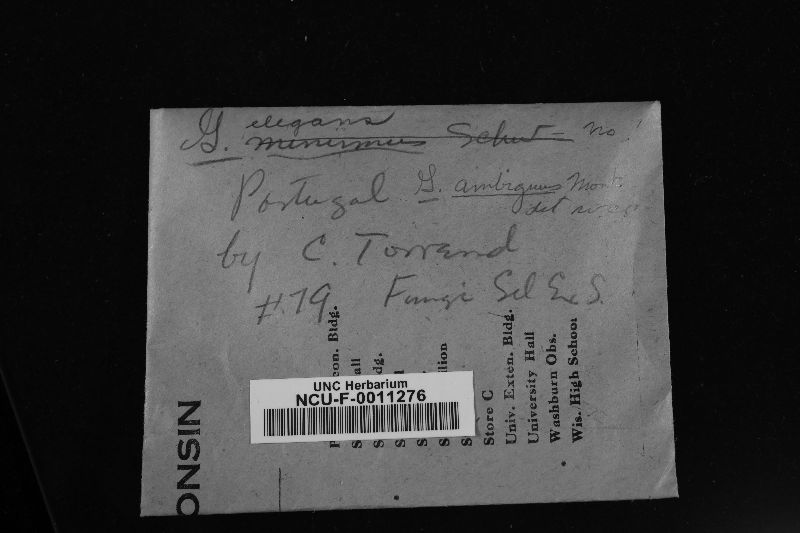 elegans
G. minimus Schw no!
Portugal G. ambiguus Mont.
det
by C. Torrend
#79 Fungi Sel Exs.
UNC Herbarium
NCU-F-0011276
con. Bldg.
all
dg.
lion
Store C
Univ. Exten. Bldg.
University Hall
Washburn Obs.
Wis. High School
ONSIN